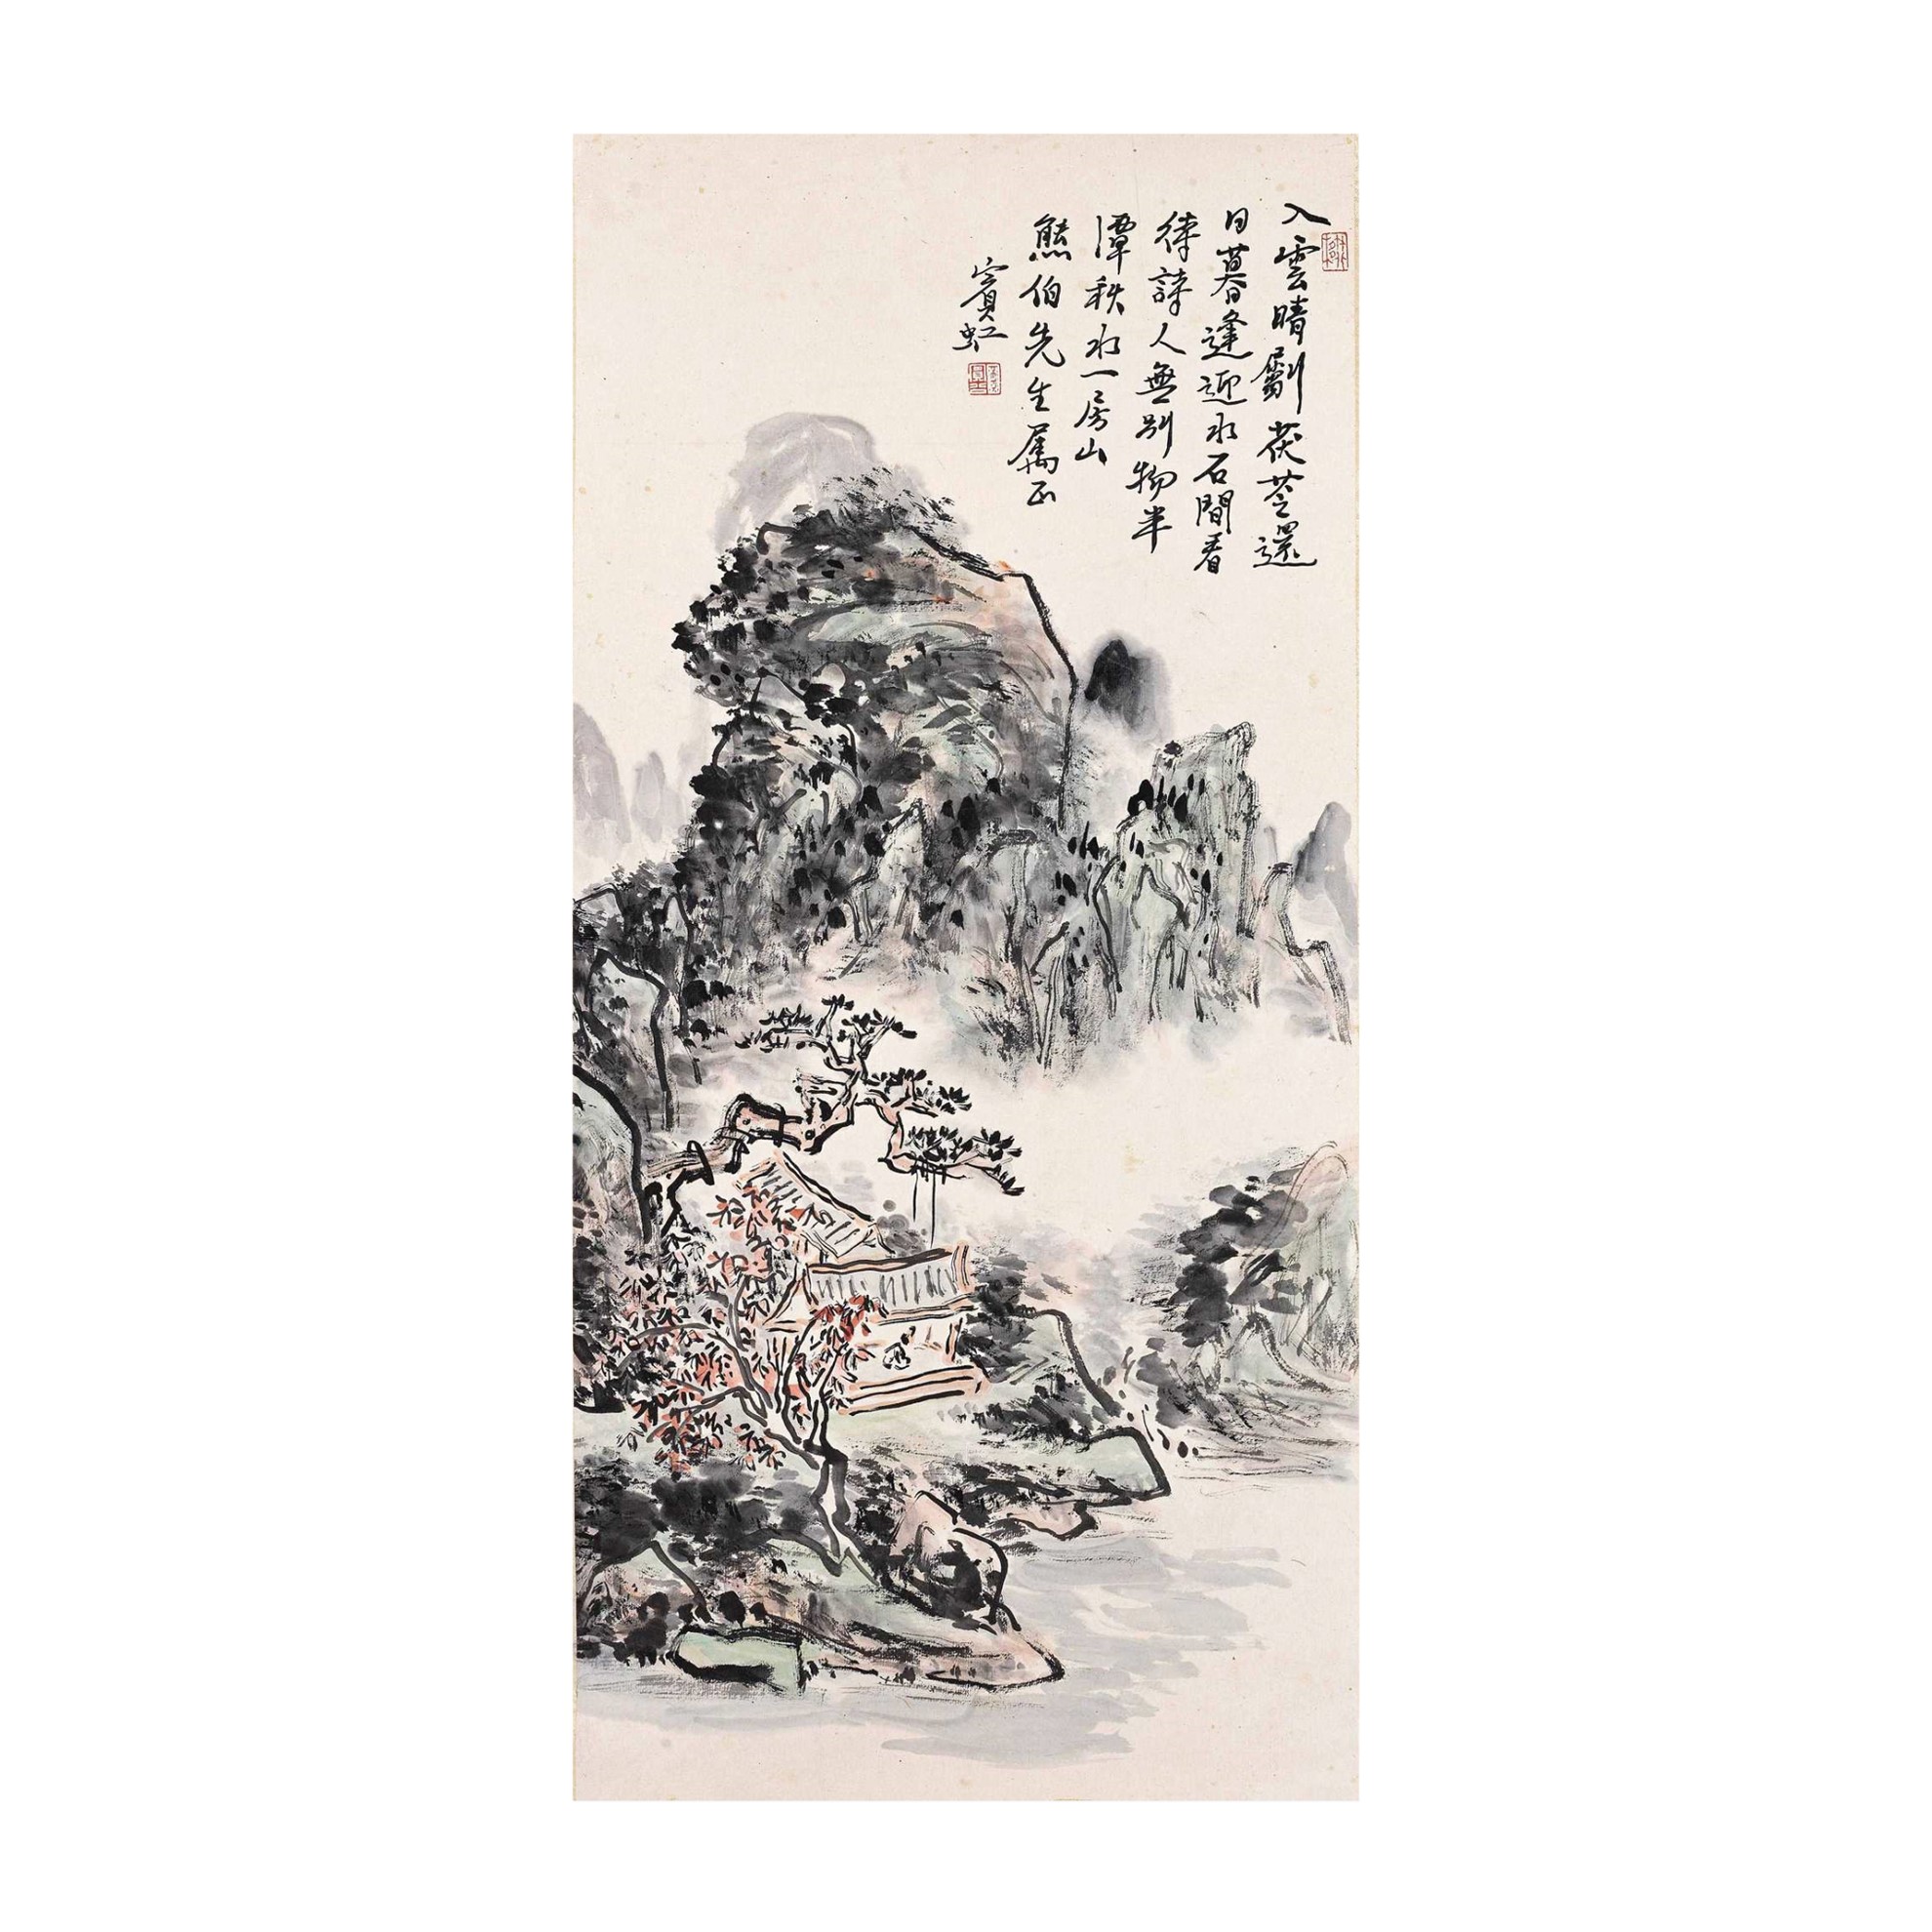 入雲晴劚茯苓還
日暮逢迎水石間看
待詩人無別物半
潭秋水一房山
熊伯先生属正
賓虹